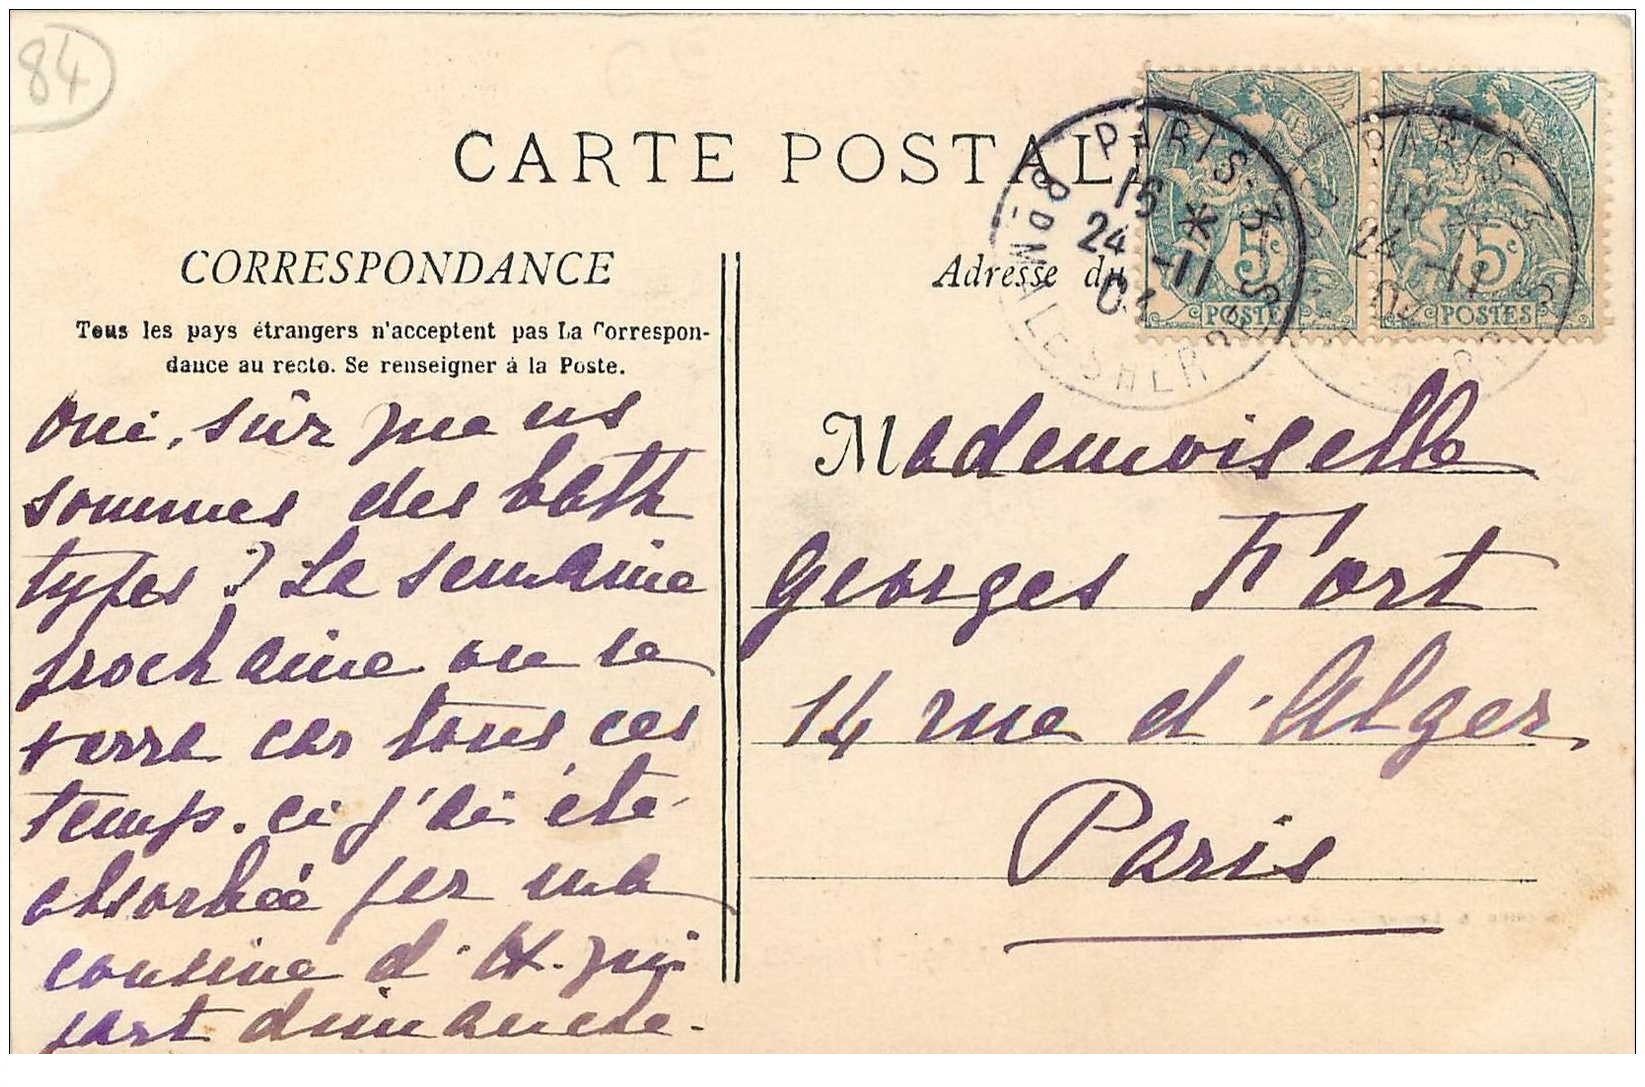 84
CARTE POSTALE
CORRESPONDANCE
Tous les pays étrangers n'acceptent pas La Correspon-
dance au recto. Se renseigner à la Poste.
Oui, sûr que ns
sommes des bath
types ? La semaine
prochaine on se
verra car tous ces
temps-ci j'ai été
absorbée par ma
cousine d'H. qui
part dimanche.
Adresse du
PARIS-3
15 *
24 -11
03
POSTES
5
POSTES
5
PARIS 3
15 *
24 -11
Mademoiselle
Georges Fort
14 rue d'Alger,
Paris